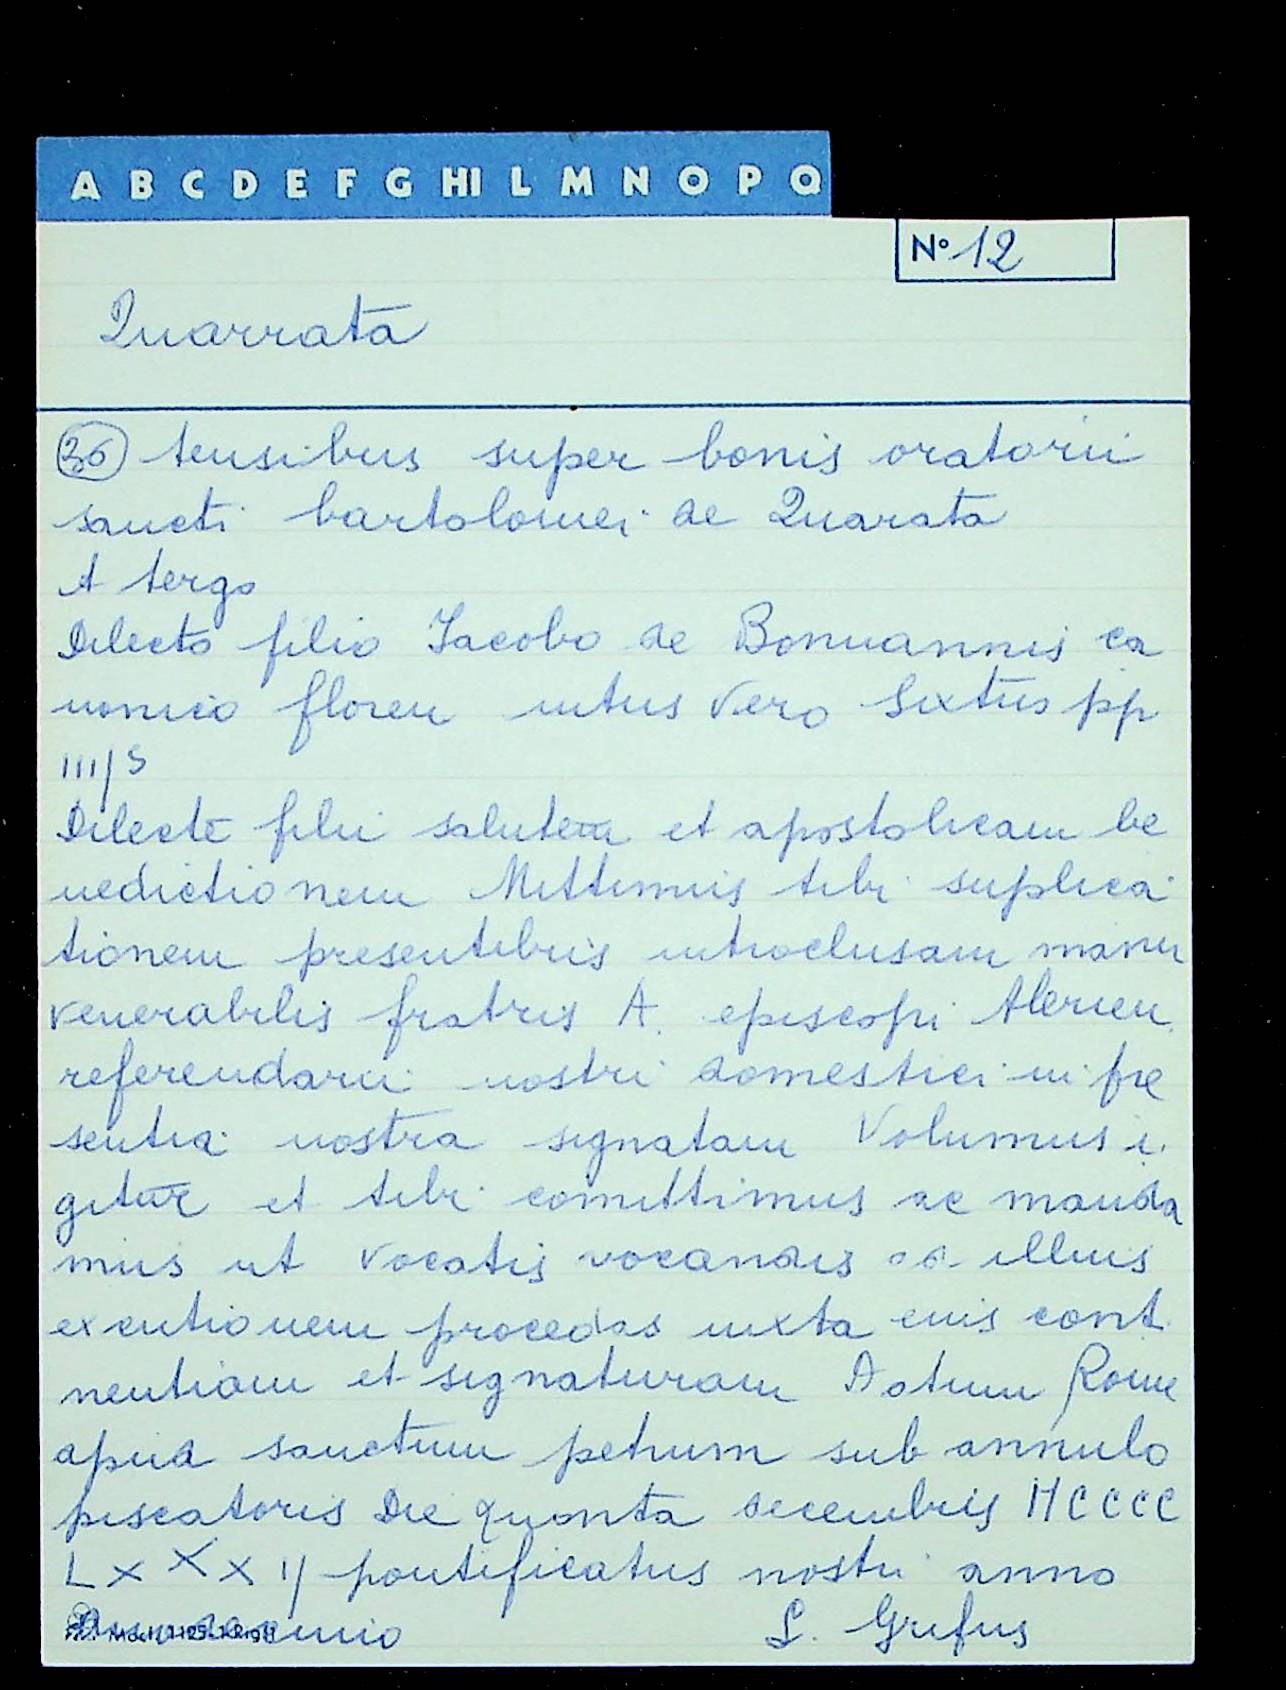 A B C D E F G HI L M N O P Q
Nº 12
Quarrata
36 tensibus super bonis oratorii
sancti bartolomei de Quarata
A tergo
Dilecto filio Iacobo de Bonuannis ca
nonico floren intus vero Sixtus pp
IIIJS
Dilecte fili salutem et apostolicam be
nedictionem Mittimus tibi suplica
tionem presentibus introclusam manu
venerabilis fratris A. episcopi Alerien
referendarii nostri domestici in pre
sentia nostra signatam Volumus i
gitur et tibi comittimus ac manda
mus ut vocatis vocandis ad illius
exentionem procedas iuxta eius cont
nentiam et signaturam Datum Rome
apud sanctum petrum sub annulo
piscatoris Die quonta decembris MCCCC
LXXXIJ pontificatus nostri anno
L. Grifus